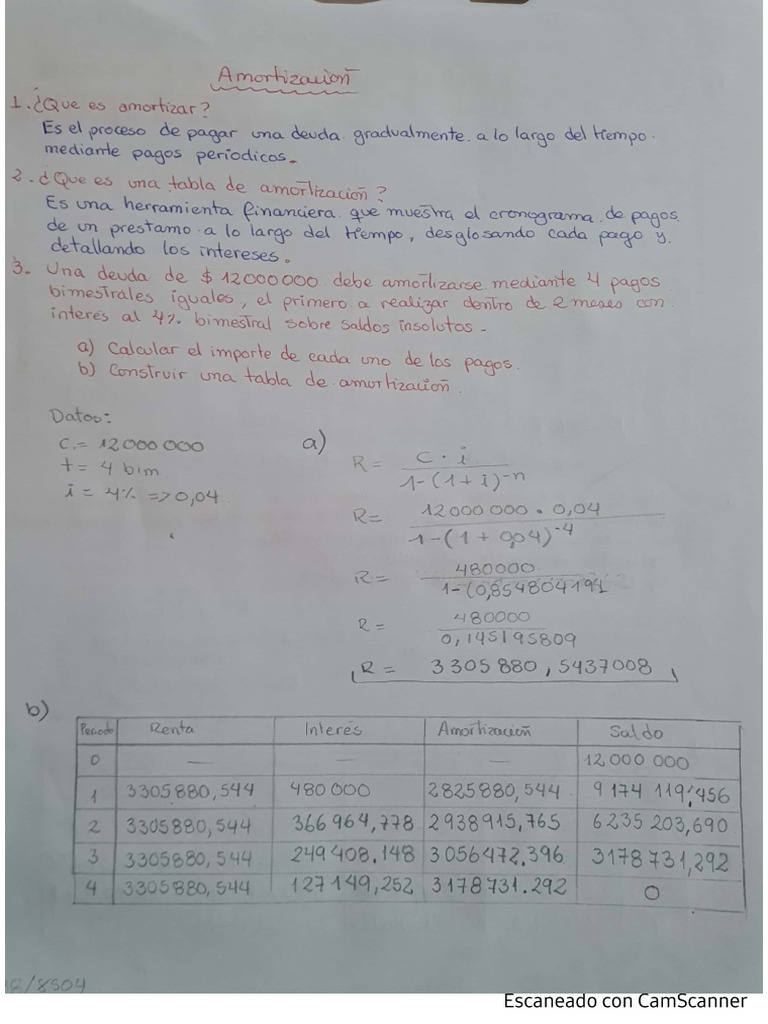 Amortización
1. ¿Que es amortizar?
Es el proceso de pagar una deuda gradualmente a lo largo del tiempo
mediante pagos períodicos.
2. ¿Que es una tabla de amortización?
Es una herramienta financiera que muestra el cronograma de pagos
de un prestamo a lo largo del tiempo, desglosando cada pago y
detallando los intereses.
3. Una deuda de $ 12000000 debe amortizarse mediante 4 pagos
bimestrales iguales, el primero a realizar dentro de 2 meses con
interés al 4% bimestral sobre saldos insolutos.
a) Calcular el importe de cada uno de los pagos.
b) Construir una tabla de amortización.
Datos:
C = 12000 000
t = 4 bim
i = 4% => 0,04
a)
R = C · i / 1-(1+i)-n
R = 12000 000 · 0,04 / 1-(1+0,04)-4
R = 480000 / 1-(0,854804191
R = 480000 / 0,145195809
R = 3305 880,5437008
b)
Periodo Renta Interés Amortización Saldo
0 — — — 12 000 000
1 3305880,544 480 000 2825880,544 9 174 119,456
2 3305880,544 366 964,778 2938915,765 6235 203,690
3 3305880,544 249 408.148 3056472,396 3178 731,292
4 3305880,544 127149,252 3178731.292 0
/8504
Escaneado con CamScanner